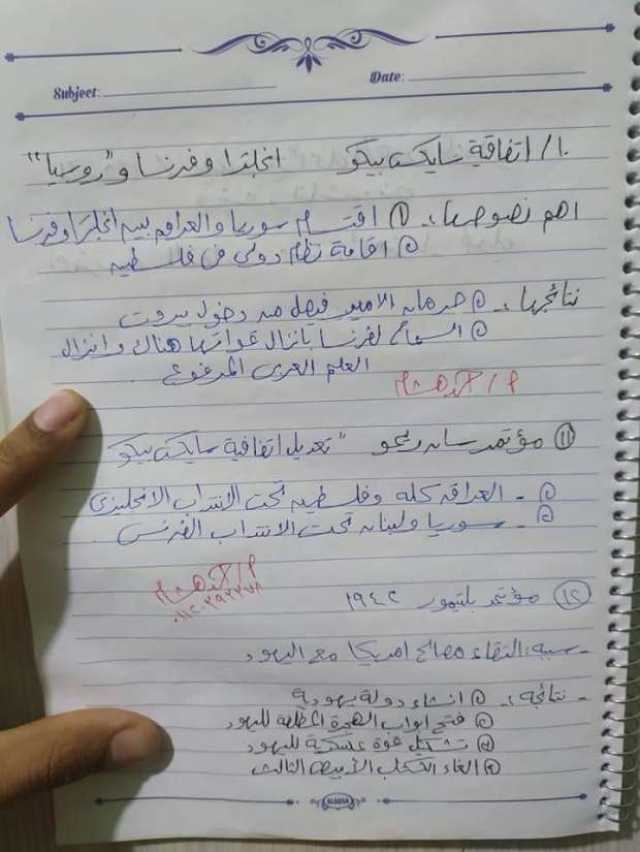 Subject:
Date:
١٠/ اتفاقية سايكس بيكو انجلترا وفرنسا و"روسيا"
اهم نصوصها :- ① اقتسام سوريا والعراق بين انجلترا وفرنسا
② اقامة نظام دولى فى فلسطين
نتائجها :- ① حرمان الامير فيصل من دخول بيروت
② السماح لفرنسا بانزال قواتها هناك وانزال
العلم العربى المرفوع
م/
⑪ مؤتمر سان ريمو "تعديل اتفاقية سايكس بيكو
① - العراق كله وفلسطين تحت الانتداب الانجليزى
② - سوريا ولبنان تحت الانتداب الفرنسى
م/
⑫ مؤتمر بلتيمور ١٩٤٢
- سببه: التقاء مصالح امريكا مع اليهود
- نتائجه :- ① انشاء دولة يهودية
② فتح ابواب الهجرة لليهود
③ تشكيل قوة عسكرية لليهود
④ الغاء الكتاب الأبيض الثالث